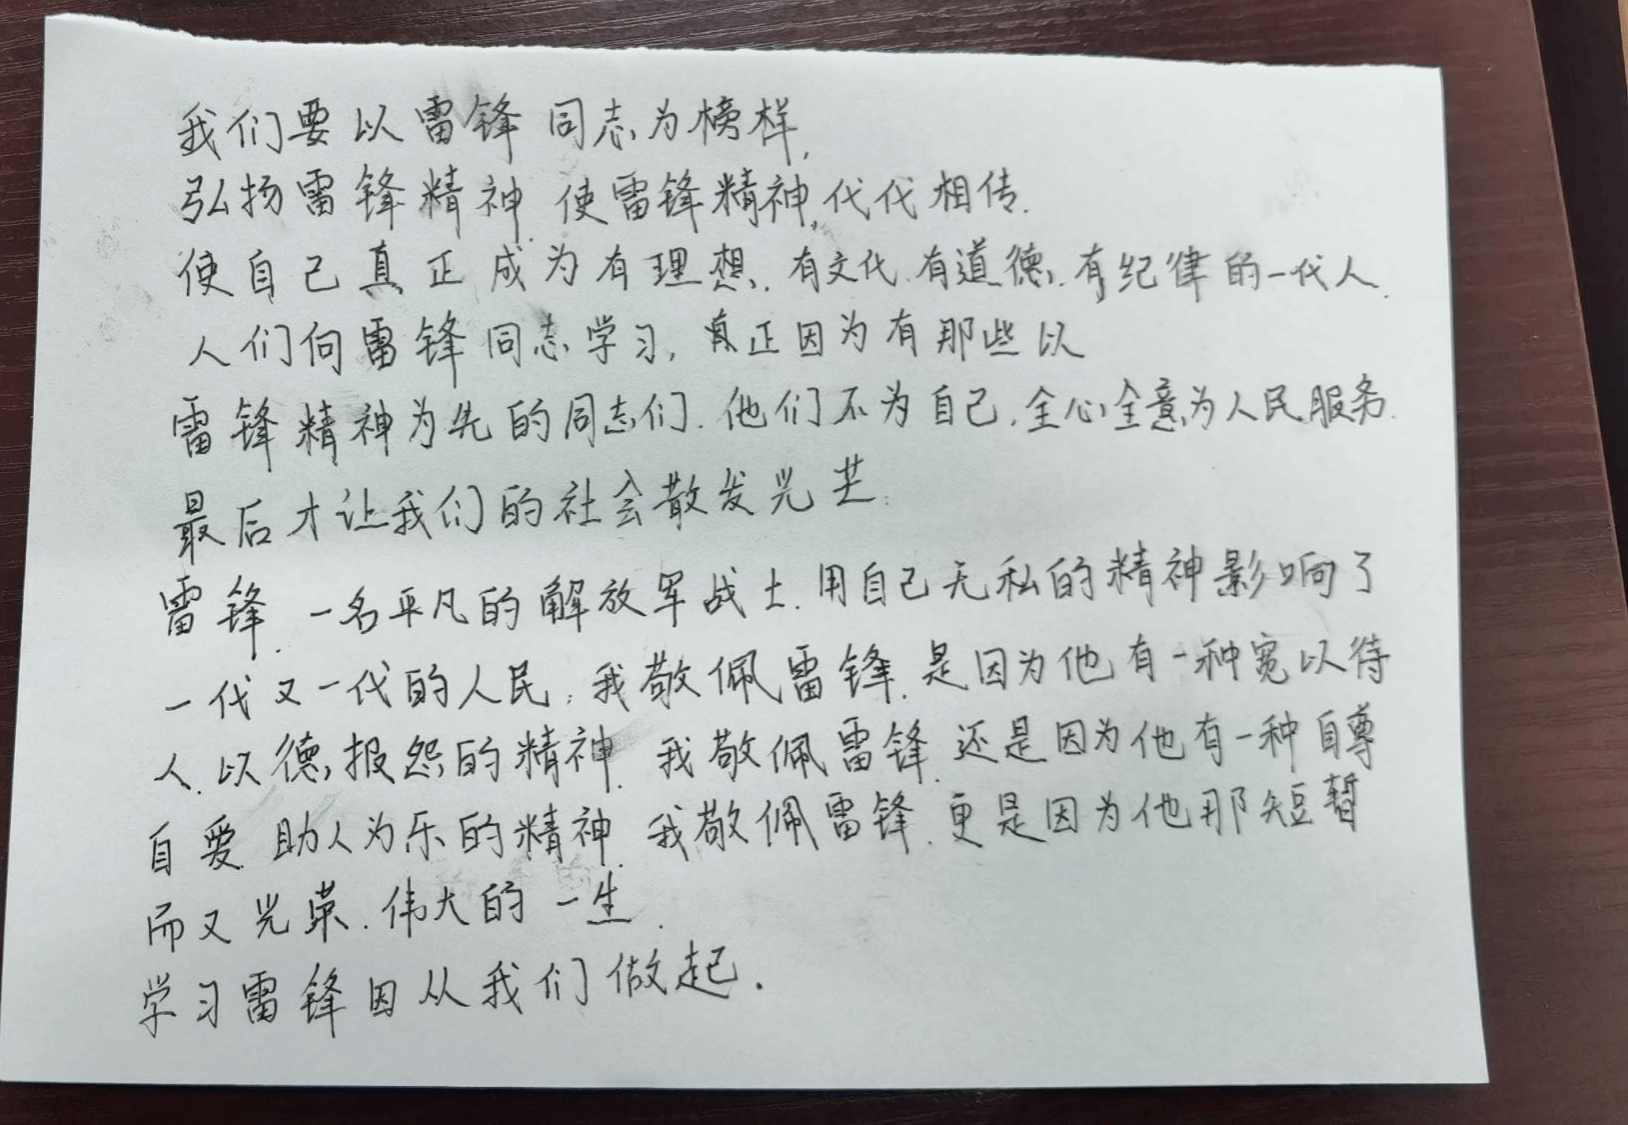 我们要以雷锋同志为榜样,
弘扬雷锋精神.使雷锋精神,代代相传.
使自己真正成为有理想.有文化.有道德.有纪律的一代人.
人们向雷锋同志学习,真正因为有那些以
雷锋精神为先的同志们.他们不为自己.全心全意为人民服务.
最后才让我们的社会散发光芒.
雷锋.一名平凡的解放军战士.用自己无私的精神影响了
一代又一代的人民,我敬佩雷锋.是因为他有一种宽以待
人.以德报怨的精神.我敬佩雷锋.还是因为他有一种自尊
自爱.助人为乐的精神.我敬佩雷锋.更是因为他那短暂
而又光荣.伟大的一生.
学习雷锋因从我们做起.